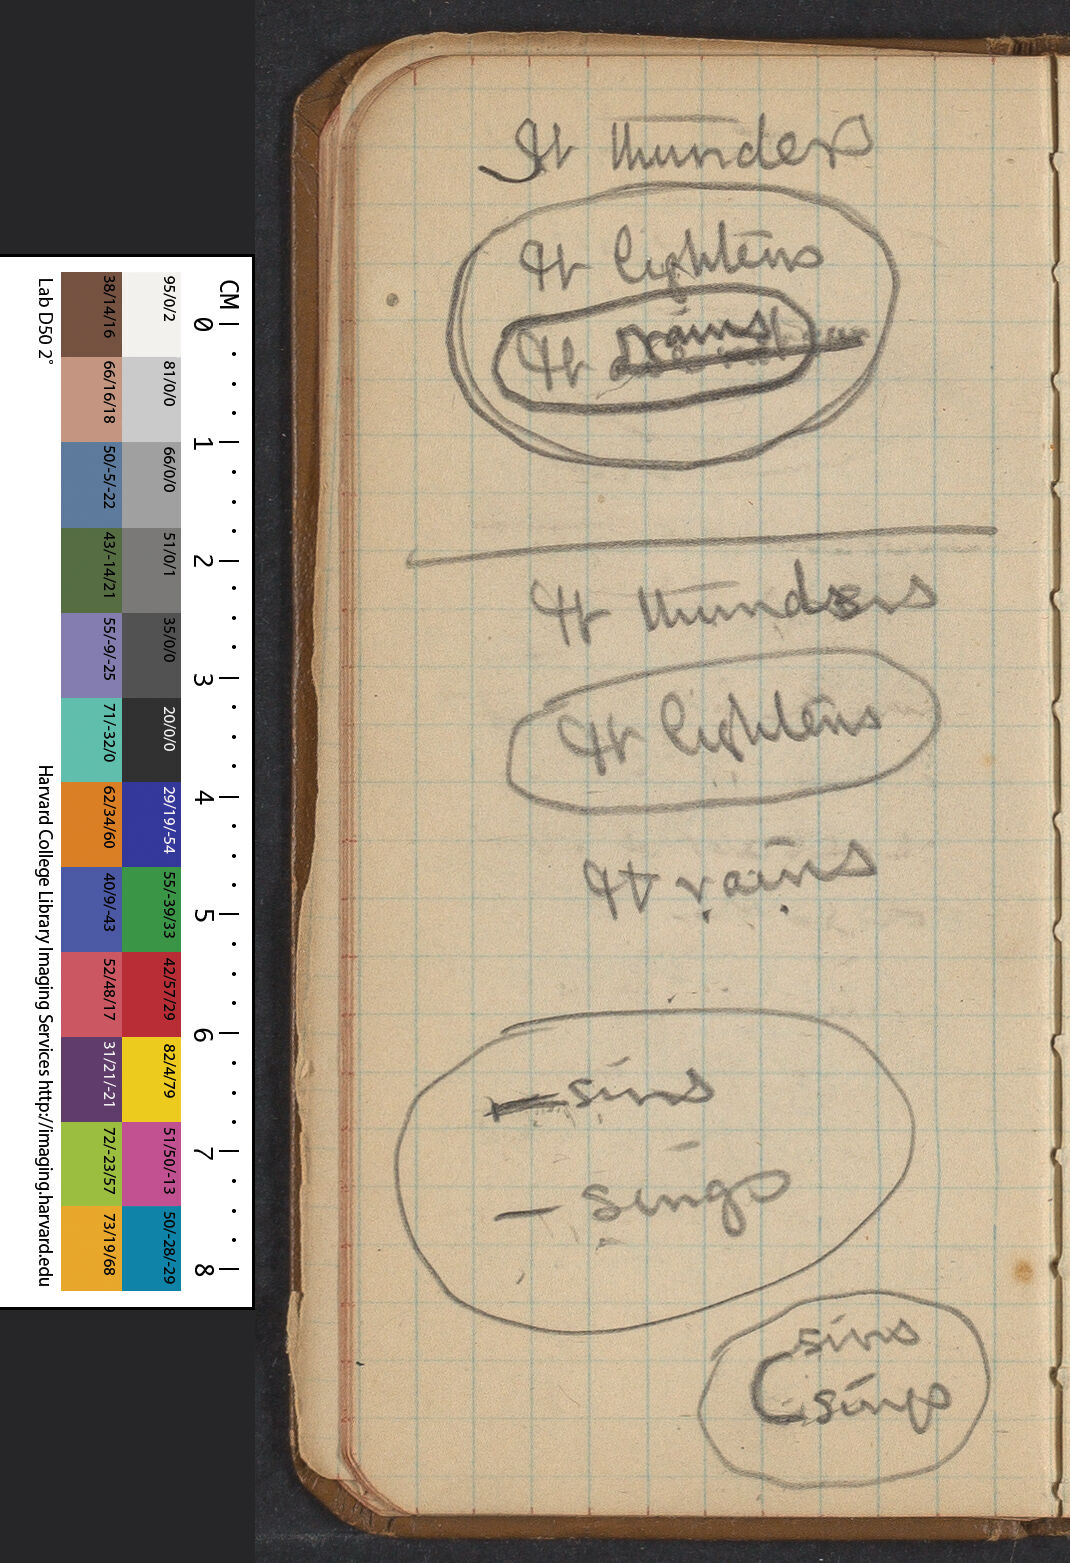 It thunders
It lightens
It rains
It thunders
It lightens
It rains
– sins
– sings
sins
sings
CM 0 1 2 3 4 5 6 7 8
95/0/2 81/0/0 66/0/0 51/0/1 35/0/0 20/0/0 29/19/-54 55/-39/33 42/57/29 82/4/79 51/50/-13 50/-28/-29
38/14/16 66/16/18 50/-5/-22 43/-14/21 55/-9/-25 71/-32/0 62/34/60 40/9/-43 52/48/17 31/21/-21 72/-23/57 73/19/68
Lab D50 2° Harvard College Library Imaging Services http://imaging.harvard.edu